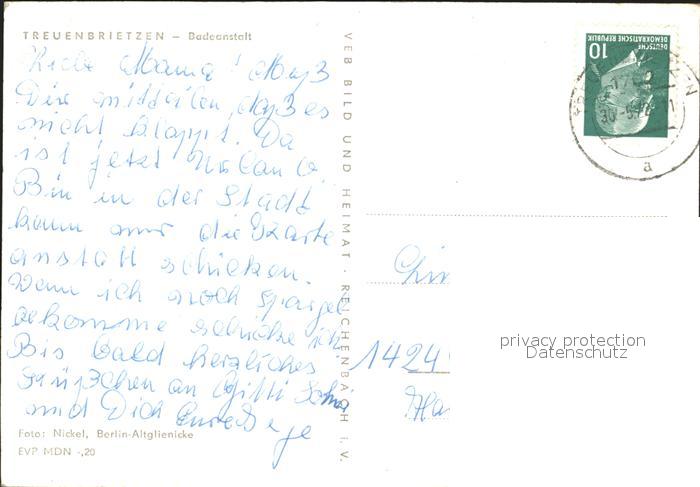 TREUENBRIETZEN – Badeanstalt
Liebe Mama! Muß
Dir mitteilen, daß es
nicht klappt. Da
ist jetzt
Bin in der Stadt
kann nur die Karte
anstatt schicken.
Wenn ich noch Spargel
bekomme schicke ich
Bis bald herzliches
Grüßchen an Gitti
und Dich Eure
Foto: Nickel, Berlin-Altglienicke
EVP MDN -,20
VEB BILD UND HEIMAT · REICHENBACH I. V.
DEUTSCHE
DEMOKRATISCHE REPUBLIK
10
a
1424
privacy protection
Datenschutz